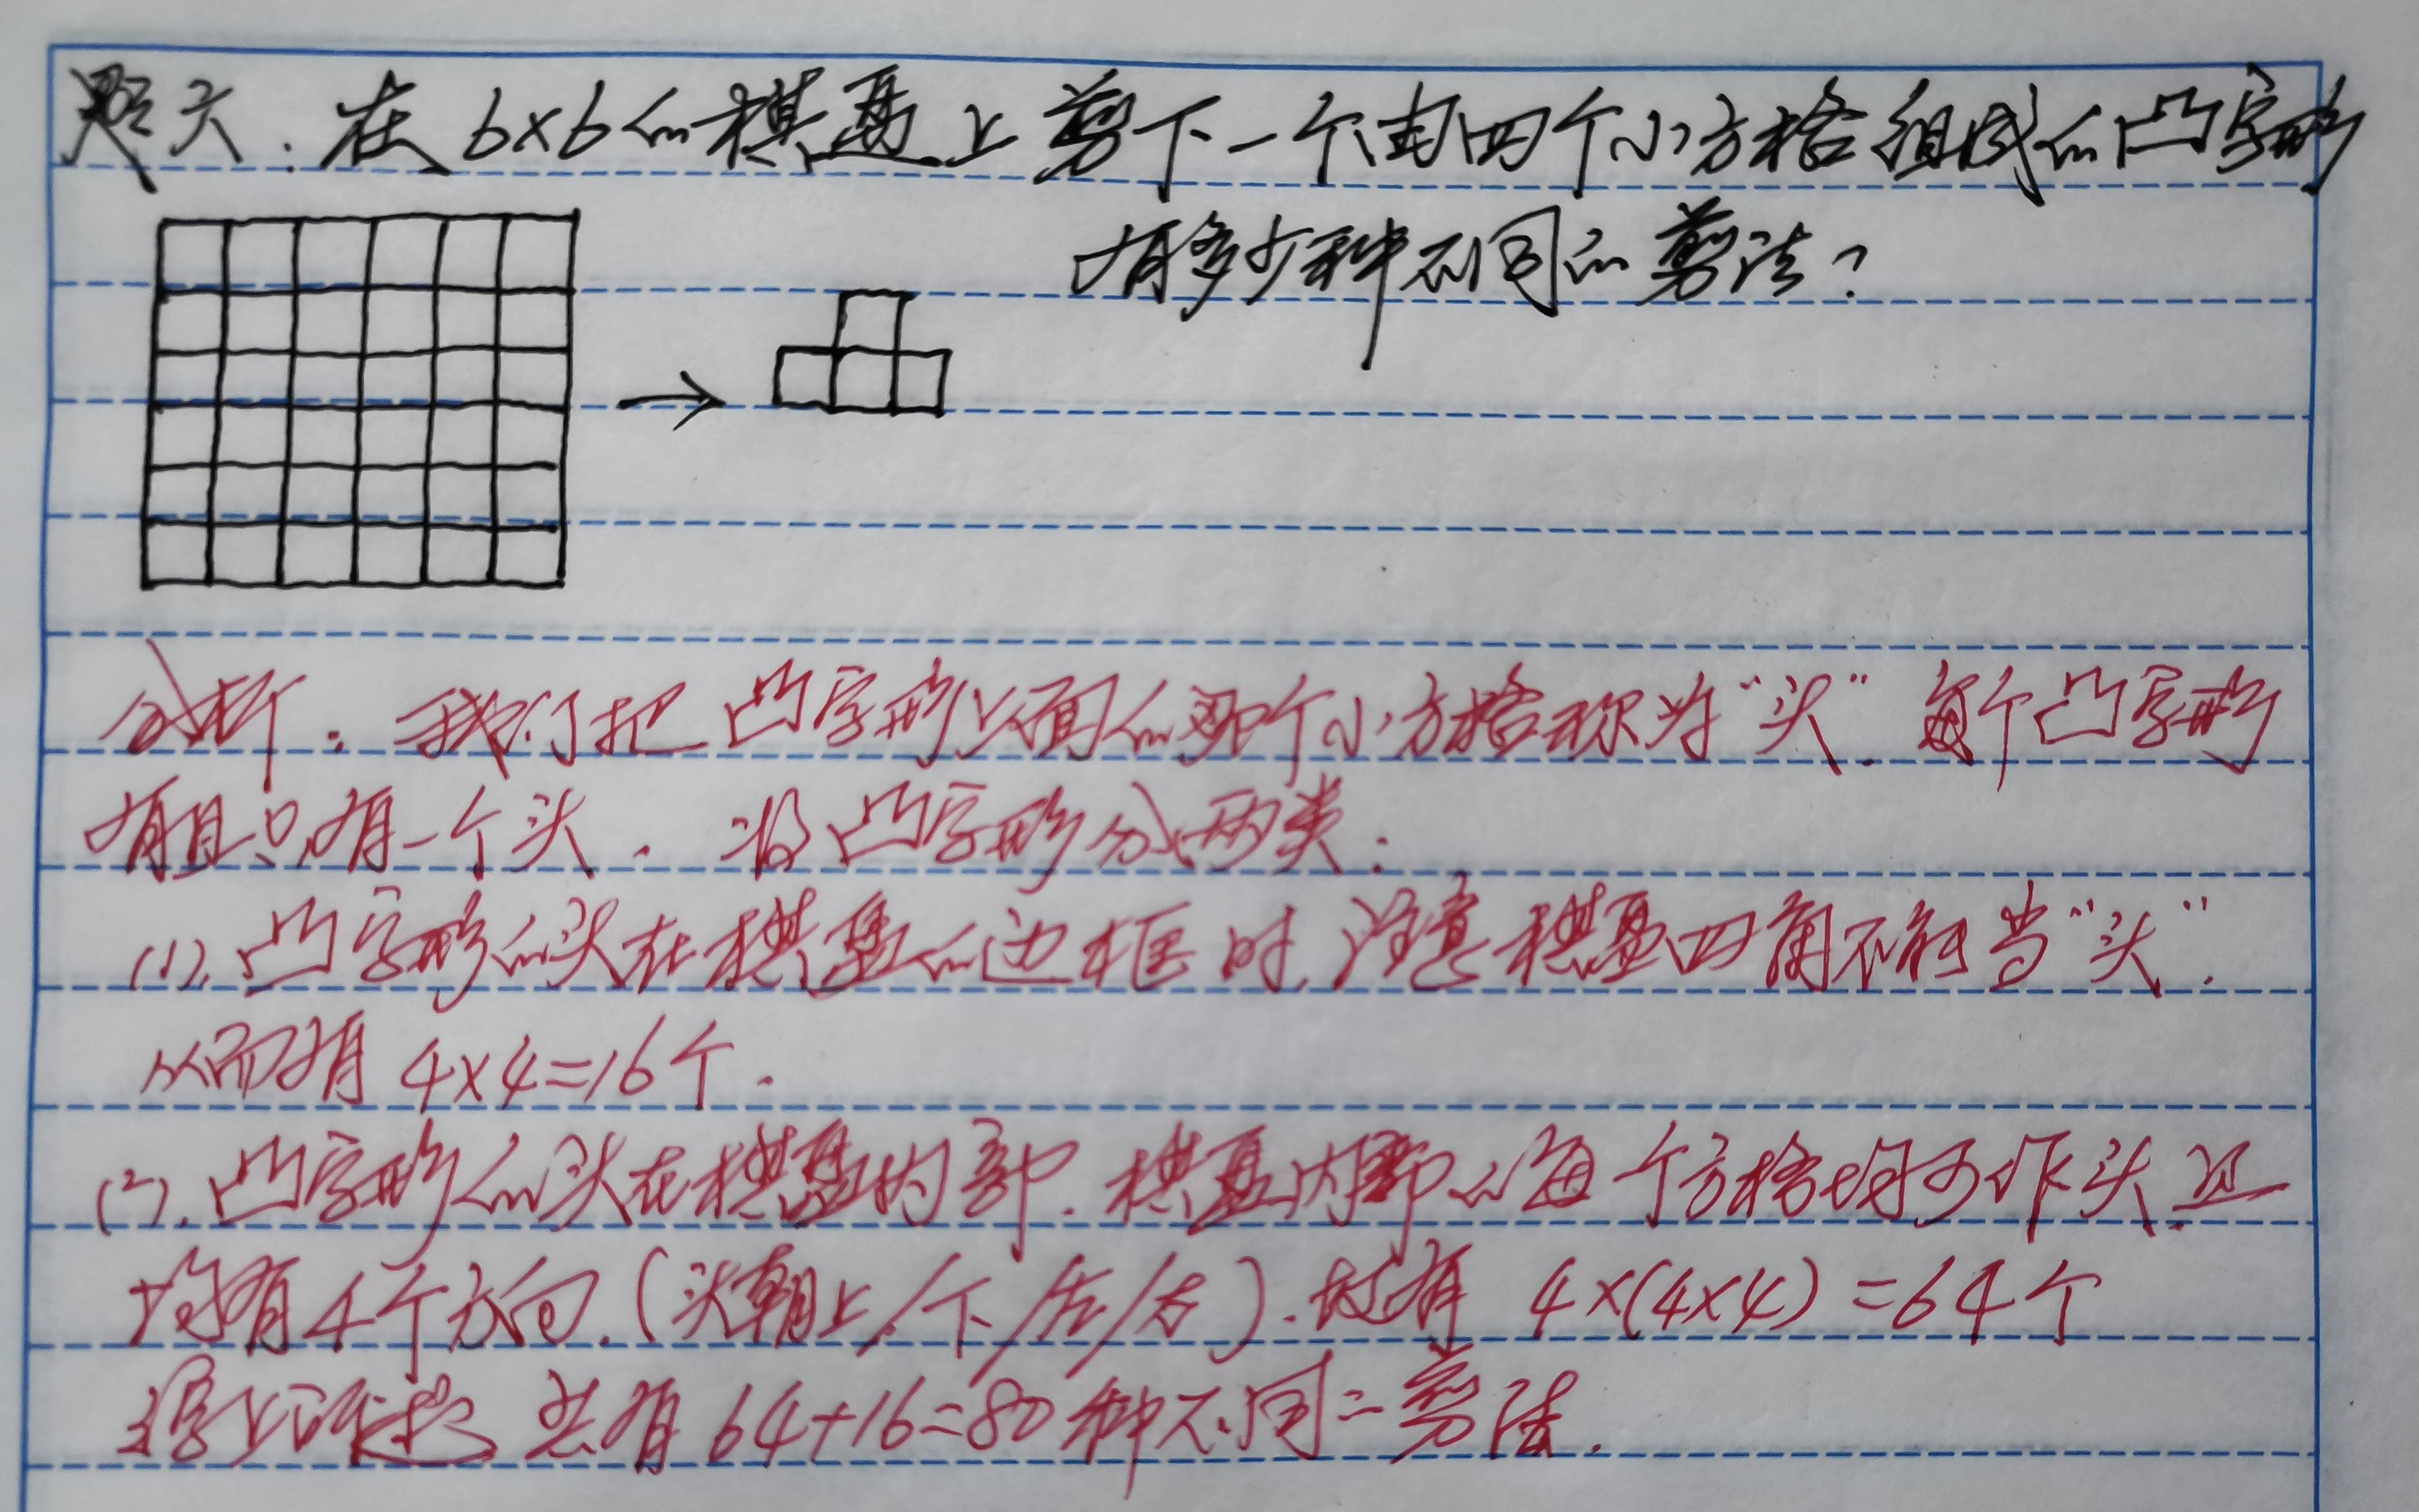 题六.在6×6的棋盘上剪下一个由四个小方格组成的凸字形
有多少种不同的剪法?
分析.我们把凸字形上面的那个小方格称为“头”.每个凸字形
有且只有一个头.将凸字形分两类:
(1).凸字形的头在棋盘的边框时,注意棋盘四角不能当“头”.
从而有4×4=16个.
(2).凸字形的头在棋盘内部.棋盘内部的每个方格均可作头,且
均有4个方向.(头朝上/下/左/右).故有 4×(4×4)=64个
综上所述 共有64+16=80种不同的剪法.